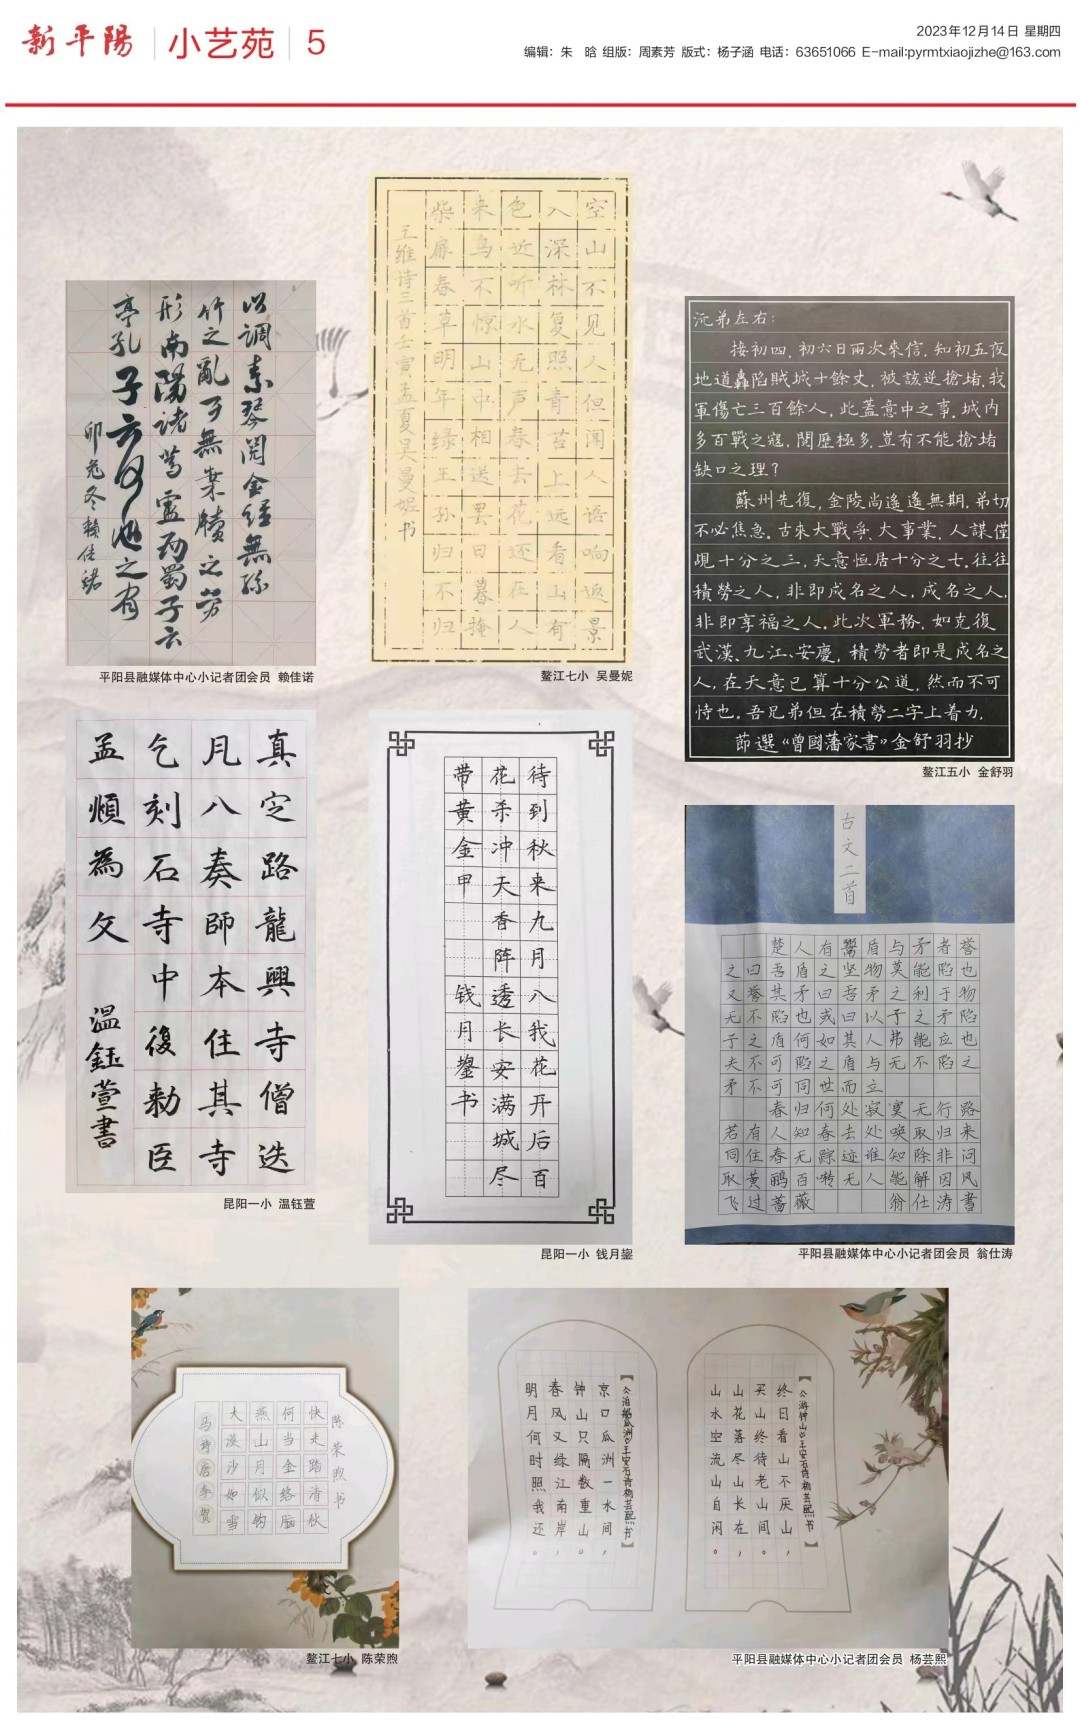 新平陽 小艺苑 5
2023年12月14日 星期四
编辑：朱 晗 组版：周素芳 版式：杨子涵 电话：63651066 E-mail:pyrmtxiaojizhe@163.com
以調素琴閱金經無絲
竹之亂耳無案牘之勞
形南陽諸葛廬西蜀子云
亭孔子云何陋之有
卯兔冬賴佳諾
平阳县融媒体中心小记者团会员 赖佳诺
空山不见人但闻人语响返景
入深林复照青苔上远看山有
色近听水无声春去花还在人
来鸟不惊山中相送罢日暮掩
柴扉春草明年绿王孙归不归
王维诗三首壬寅孟夏吴曼妮书
鳌江七小 吴曼妮
沅弟左右：
接初四，初六日兩次來信，知初五夜
地道轟陷賊城十餘丈，被該逆搶堵，我
軍傷亡三百餘人，此蓋意中之事，城内
多百戰之寇，閱歷極多，豈有不能搶堵
缺口之理？
蘇州先復，金陵尚遙遙無期，弟切
不必焦急。古來大戰爭、大事業，人謀僅
覩十分之三，天意恒居十分之七，往往
積勞之人，非即成名之人，成名之人，
非即享福之人。此次軍務，如克復
武漢、九江、安慶，積勞者即是成名之
人，在天意已算十分公道，然而不可
恃也。吾兄弟但在積勞二字上着力，
節選《曾國藩家書》金舒羽抄
鳌江五小 金舒羽
真定路龍興寺僧迭
凡八奏師本住其寺
乞刻石寺中復勑臣
孟頫為文
溫鈺萱書
昆阳一小 温钰萱
待到秋来九月八我花开后百
花杀冲天香阵透长安满城尽
带黄金甲 钱月鋆书
昆阳一小 钱月鋆
古文二首
楚人有鬻盾与矛者誉
之曰吾盾之坚物莫能陷也
又誉其矛曰吾矛之利于物
无不陷也或曰以子之矛陷
子之盾何如其人弗能应也
夫不可陷之盾与无不陷之
矛不可同世而立
春归何处寂寞无行路
若有人知春去处唤取归来
同住春无踪迹谁知除非问
取黄鹂百啭无人能解因风
飞过蔷薇 翁仕涛書
平阳县融媒体中心小记者团会员 翁仕涛
陈荣煦书
快走踏清秋
何当金络脑
燕山月似钩
大漠沙如雪
马诗唐李贺
鳌江七小 陈荣煦
【《游钟山》王安石诗杨芸熙书】
终日看山不厌山，
买山终待老山间。
山花落尽山长在，
山水空流山自闲。
【《泊船瓜洲》王安石诗杨芸熙书】
京口瓜洲一水间，
钟山只隔数重山。
春风又绿江南岸，
明月何时照我还。
平阳县融媒体中心小记者团会员 杨芸熙